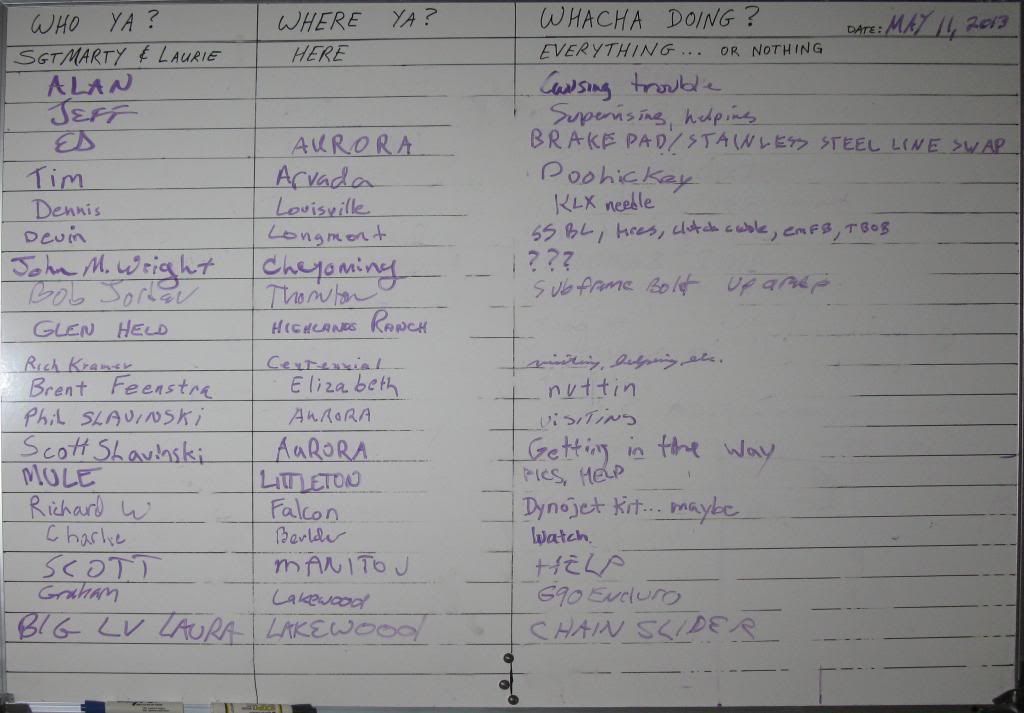 WHO YA? WHERE YA? WHACHA DOING? DATE: MAY 11, 2013
SGTMARTY & LAURIE HERE EVERYTHING... OR NOTHING
ALAN Causing trouble
JEFF Supervising, helping
ED AURORA BRAKE PAD/STAINLESS STEEL LINE SWAP
Tim Arvada Doohickey
Dennis Louisville KLX needle
Devin Longmont SS BL, tires, clutch cable, emFB, TBOB
John M. Wright Cheyoming ???
Bob Thornton Subframe Bolt
GLEN HELD HIGHLANDS RANCH
Rich Kramer Centennial visiting, helping, etc.
Brent Feenstra Elizabeth nuttin
Phil SLAVINSKI AURORA VISITING
Scott Slavinski AURORA Getting in the way
MULE LITTLETON PICS, HELP
Richard W Falcon Dynojet Kit... maybe
Charlie Watch.
SCOTT MANITOU HELP
Graham Lakewood 690 Enduro
BIG LV LAURA LAKEWOOD CHAIN SLIDER